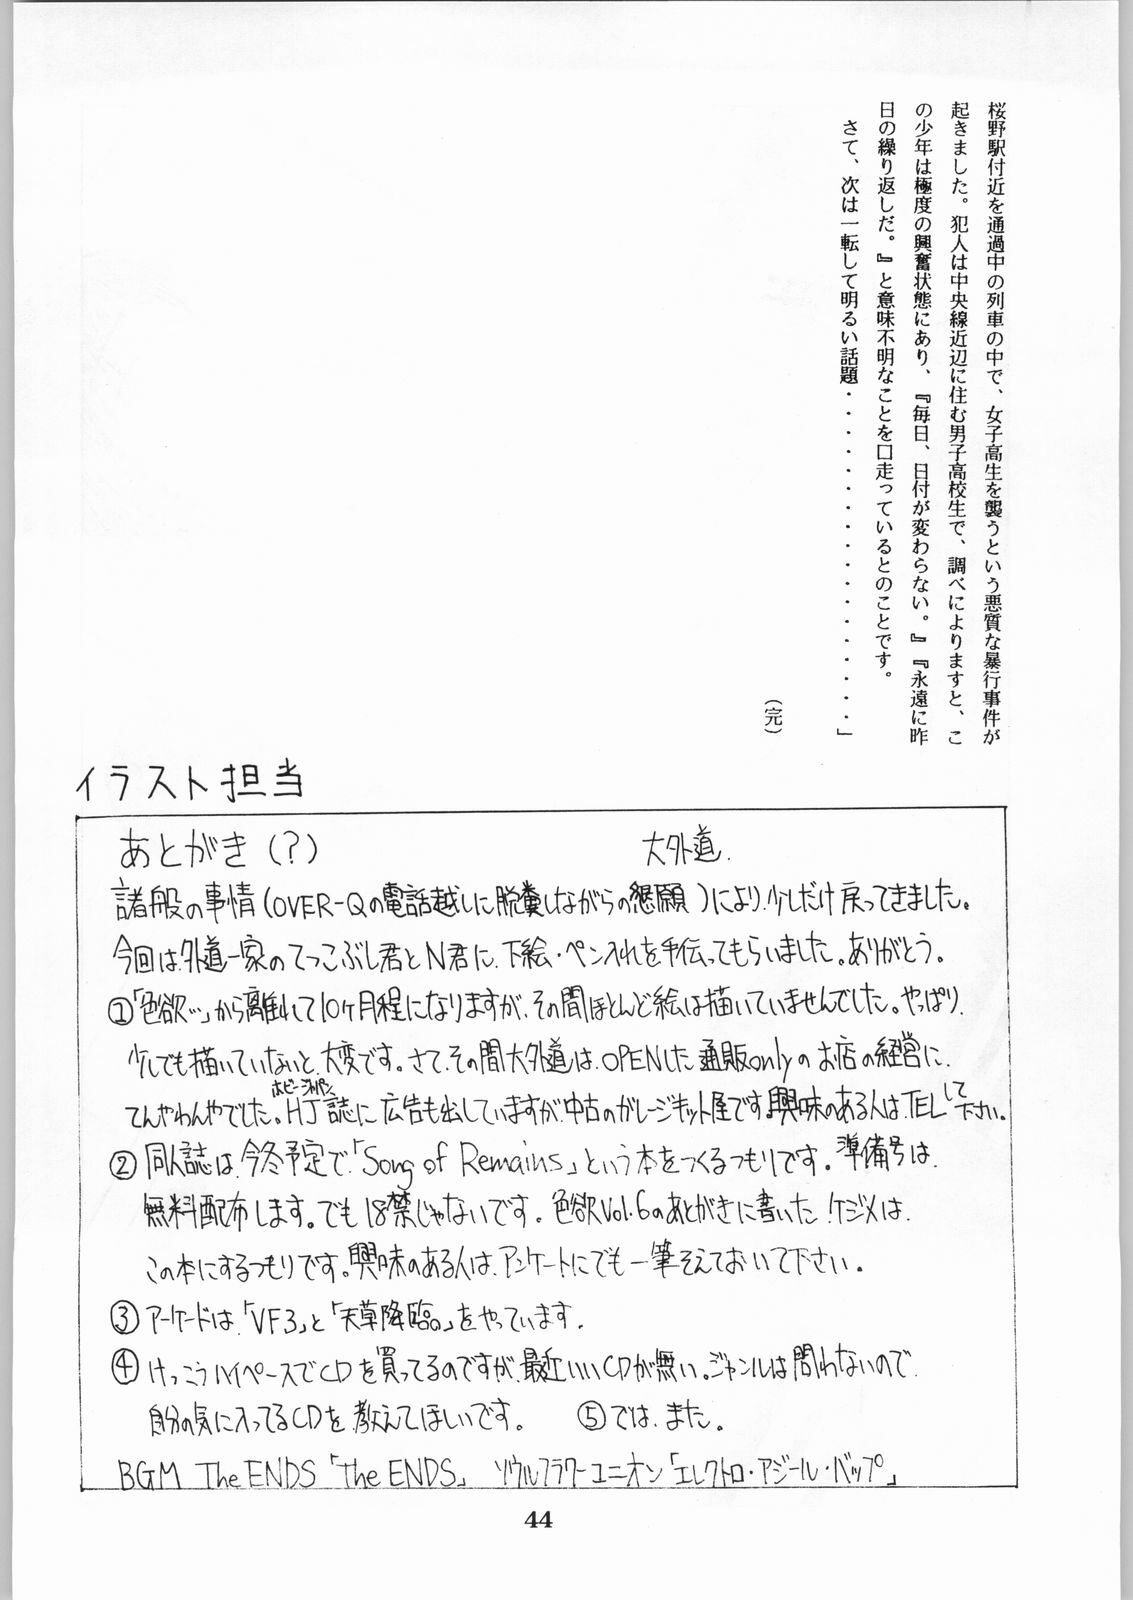 桜野駅付近を通過中の列車の中で、女子高生を襲うという悪質な暴行事件が
起きました。犯人は中央線近辺に住む男子高校生で、調べによりますと、こ
の少年は極度の興奮状態にあり、『毎日、日付が変わらない。』『永遠に昨
日の繰り返しだ。』と意味不明なことを口走っているとのことです。
さて、次は一転して明るい話題・・・・・・・・・・・・・・・・・・」
(完)
イラスト担当
あとがき(?) 大外道.
諸般の事情(OVER-Qの電話越しに脱糞しながらの懇願)により、少しだけ戻ってきました。
今回は、外道一家のてっこぶし君とN君に、下絵・ペン入れを手伝ってもらいました。ありがとう。
①「色欲…」から離れて10ヶ月程になりますが、その間ほとんど絵は描いていませんでした。やっぱり、
少しでも描いていないと、大変です。さて、その間大外道は、OPENした通販onlyのお店の経営に、
てんやわんやでした。HJ誌に広告も出していますが、中古のガレージキット屋です。興味のある人は、TELして下さい。
ホビージャパン
②同人誌は、今冬予定で、「Song of Remains」という本をつくるつもりです。準備号は、
無料配布します。でも18禁じゃないです。色欲Vol.6のあとがきに書いた、ケジメは、
この本にするつもりです。興味のある人は、アンケートにでも一筆そえておいて下さい。
③アーケードは、「VF3」と「天草降臨。」をやっています.
④けっこうハイペースでCDを買ってるのですが、最近いいCDが無い。ジャンルは問わないので、
自分の気に入ってるCDを、教えてほしいです。 ⑤では、また。
BGM The ENDS「the ENDS」 ソウルフラワーユニオン「エレクトロ・アジール・バップ」
44